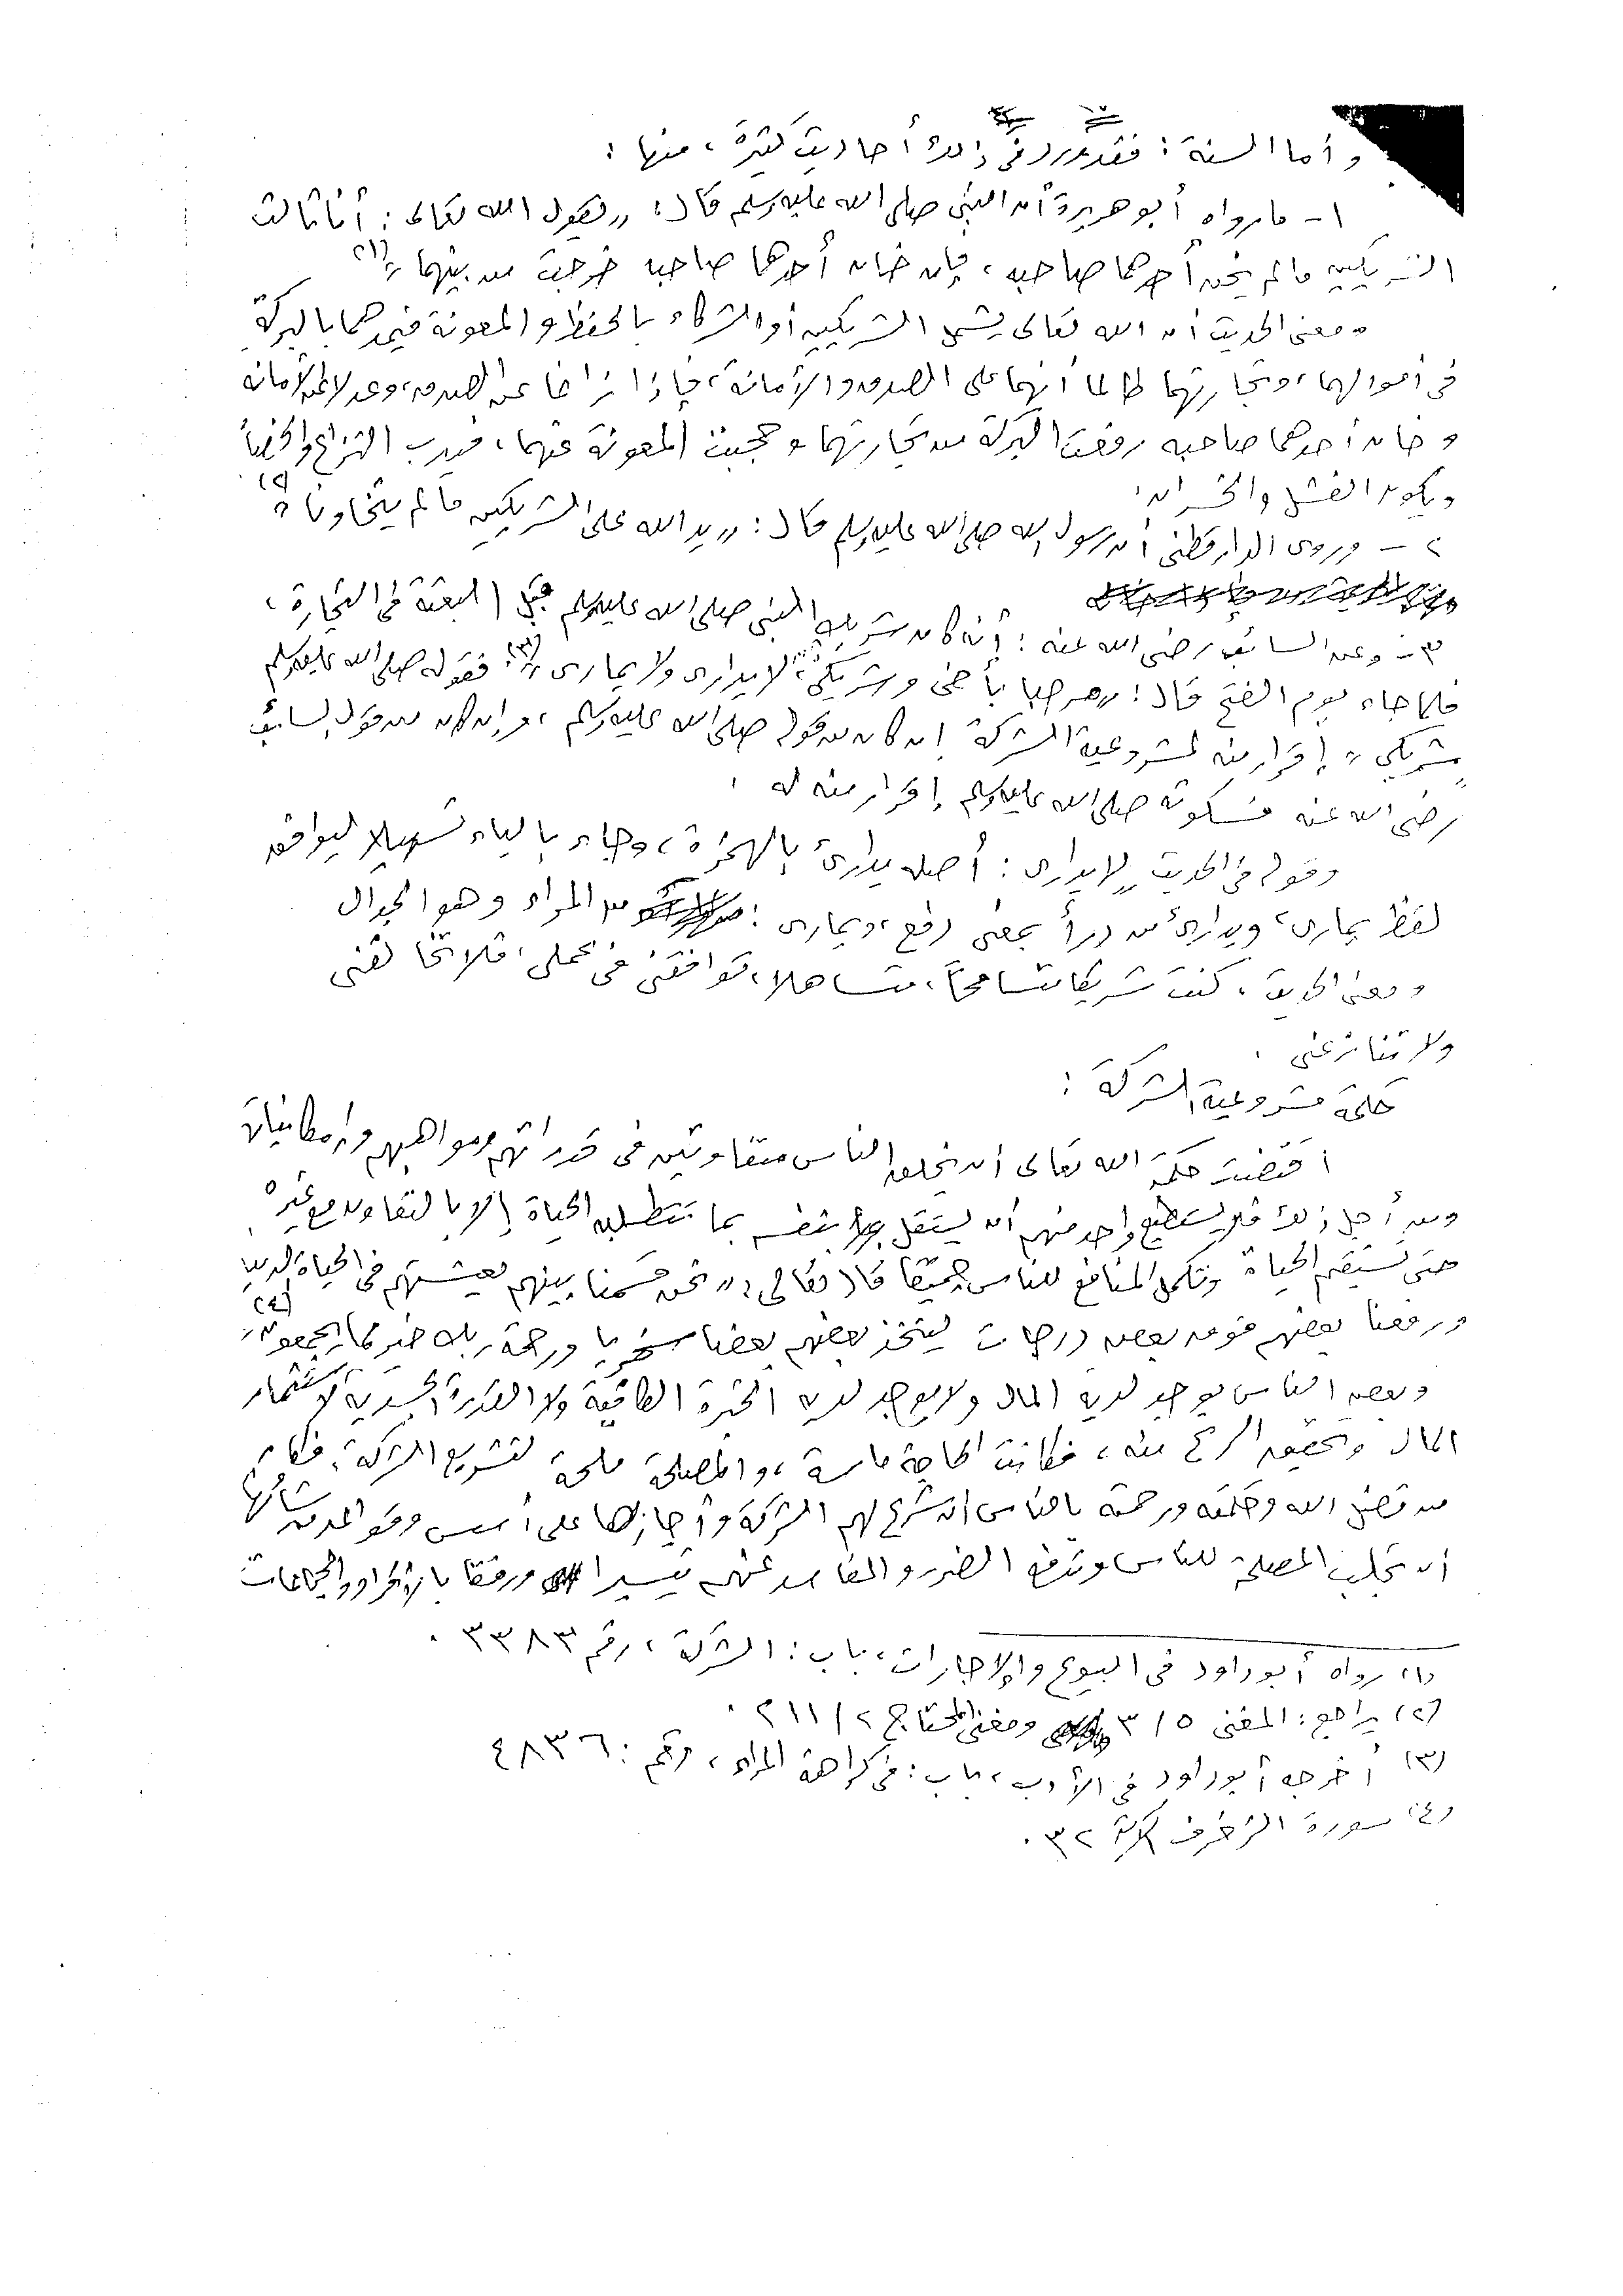 وأما السنة : فقد ورد في ذلك أحاديث كثيرة ، منها :
١- ما رواه أبو هريرة أن النبي صلى الله عليه وسلم قال : «يقول الله تعالى : أنا ثالث
الشريكين ما لم يخن أحدهما صاحبه ، فإن خان أحدهما صاحبه خرجت من بينهما» (١)
ومعنى الحديث أن الله تعالى يشمل الشريكين أو الشركاء بالحفظ والمعونة فيمدهما بالبركة
في أموالهما ، وتجارتهما طالما أنهما على الصدق والأمانة ، فإذا زاغا عن الصدق ، وعدلا عن الأمانة
وخان أحدهما صاحبه رفعت البركة من تجارتهما وحجبت المعونة عنهما ، فيدب النزاع والخصام
ويكون الفشل والخسران .
٢- وروى الدارقطني أن رسول الله صلى الله عليه وسلم قال : «يد الله على الشريكين ما لم يتخاونا» (٢)
٣- وعن السائب رضي الله عنه : أنه كان شريك النبي صلى الله عليه وسلم قبل البعثة في التجارة ،
فلما جاء يوم الفتح قال : «مرحبا بأخي وشريكي ، لا يداري ولا يماري» (٣) فقوله صلى الله عليه وسلم
«شريكي» إقرار منه لمشروعية الشركة إن كان من قوله صلى الله عليه وسلم ، وإن كان من قول السائب
رضي الله عنه فسكوته صلى الله عليه وسلم إقرار منه له .
وقوله في الحديث «لا يداري : أصله يدارئ بالهمزة ، وجاء بالياء تسهيلا ليوافق
لفظ يماري ، ويدارئ من درأ بمعنى دفع ، ويماري : من المراء وهو الجدال
ومعنى الحديث ، كنت شريكا متسامحاً ، متساهلا ، توافقني في عملي ، فلا تخالفني
ولا تنازعني .
حكمة مشروعية الشركة :
اقتضت حكمة الله تعالى أن يخلق الناس متفاوتين في قدراتهم ومواهبهم وإمكانياتهم
ومن أجل ذلك فلا يستطيع واحد منهم أن يستقل بنفسه بما تتطلبه الحياة إلا بالتعاون مع غيره
حتى تستقيم الحياة وتكمل المنافع للناس جميعًا قال تعالى : «نحن قسمنا بينهم معيشتهم في الحياة الدنيا
ورفعنا بعضهم فوق بعض درجات ليتخذ بعضهم بعضا سخريا ورحمة ربك خير مما يجمعون» (٤)
وبعض الناس يوجد لديه المال ولا يوجد لديه الخبرة الكافية ولا القدرة الجسدية لاستثمار
المال وتحقيق الربح منه ، فكانت الحاجة ماسة ، والمصلحة ملحة لتشريع الشركة ، فكان
من فضل الله وحكمته ورحمته بالناس أن شرع لهم الشركة وأجازها على أسس وقواعد من شأنها
أن تجلب المصلحة للناس وتدفع الضرر والمفاسد عنهم تيسيرا ورفقا بالأفراد والجماعات
(١) رواه أبو داود في البيوع والإجارات ، باب : الشركة ، رقم ٣٣٨٣ .
(٢) يراجع : المغني ٥/٣ ومغني المحتاج ٢/٢١١ .
(٣) أخرجه أبو داود في الأدب ، باب : في كراهة المراء ، رقم : ٤٨٣٦
(٤) سورة الزخرف آية ٣٢ .